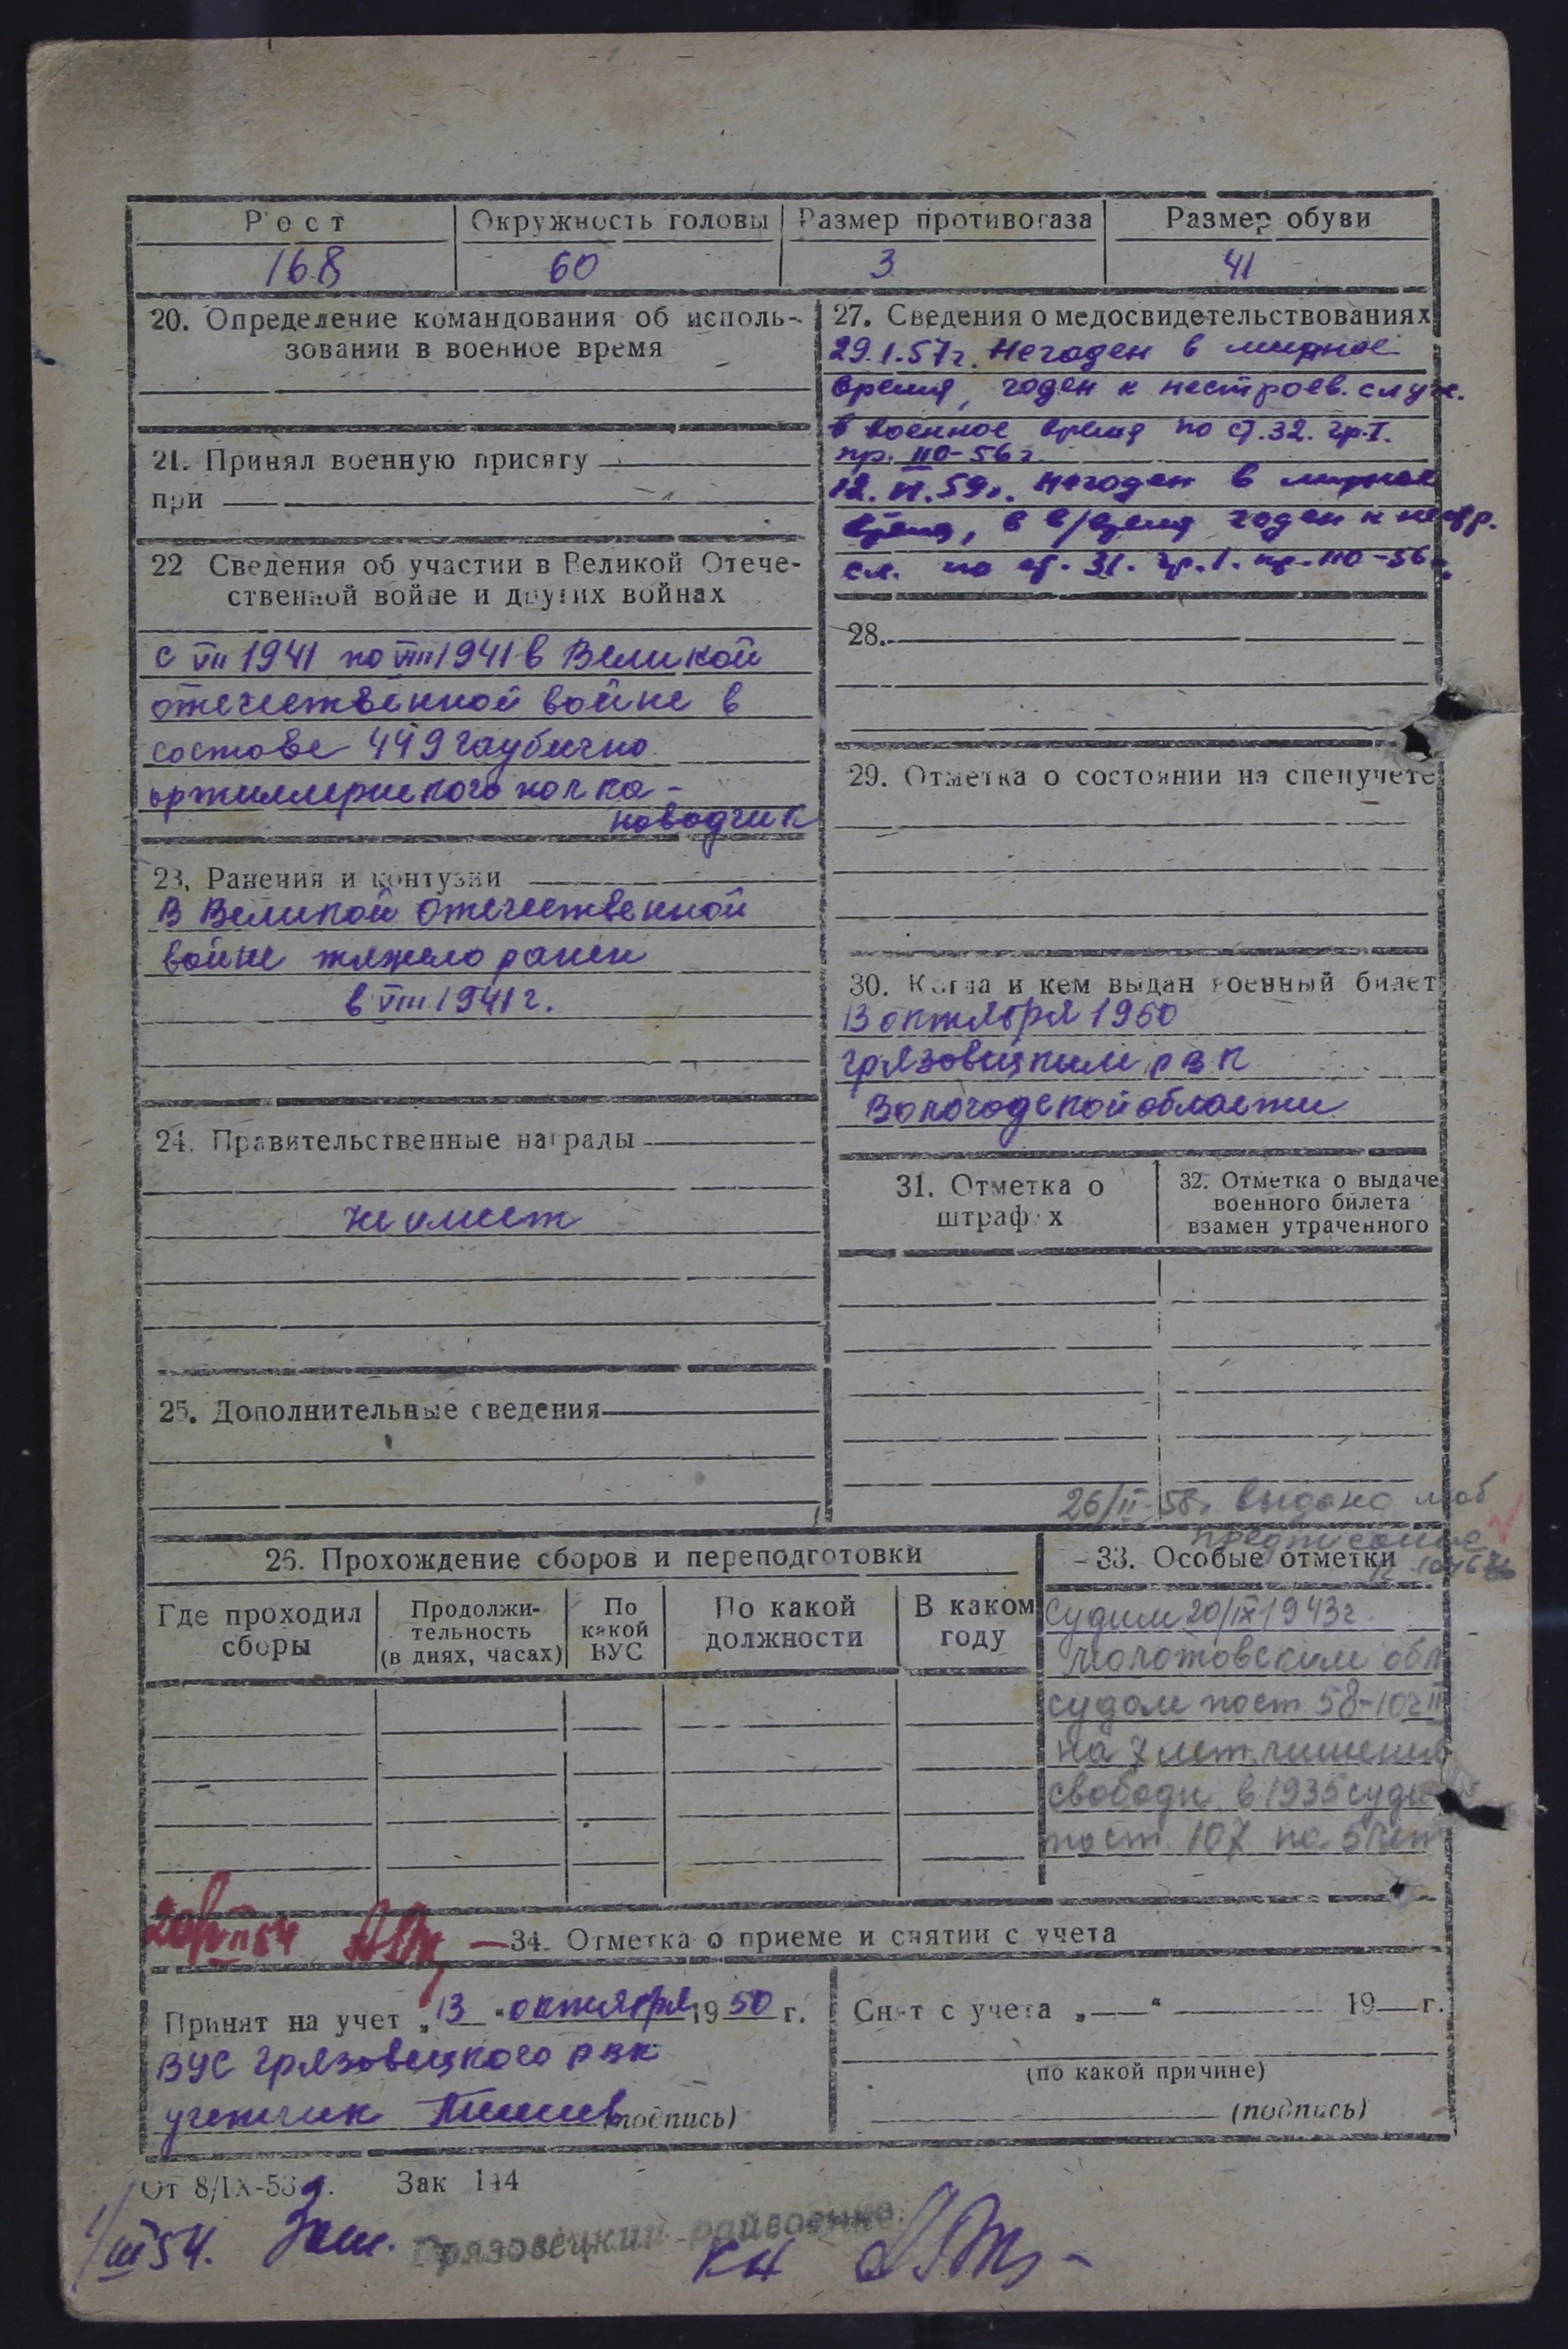 Рост
Окружность головы
Размер противогаза
Размер обуви
168
60
3
41
20. Определение командования об исполь-
зовании в военное время
21. Принял военную присягу
при
22 Сведения об участии в Великой Отече-
ственной войне и других войнах
с VII 1941 по VIII 1941 в Великой
отечественной войне в
составе 449 гаубично
артиллериского полка -
наводчик
23. Ранения и контузии
В Великой Отечественной
войне тяжело ранен
в VIII 1941 г.
24. Правительственные награды
не имеет
25. Дополнительные сведения
27. Сведения о медосвидетельствованиях
29.I.57г. Негоден в мирное
время, годен к нестроев. служ.
в военное время по ст. 32. гр. I.
пр. 110-56 г
12. VI. 59г. Негоден в мирное
время, в в/время годен к нестр.
сл. по ст. 31. гр. 1. пр. 110-56 г.
28.
29. Отметка о состоянии на спецучете
30. Когда и кем выдан военный билет
13 октября 1950
Грязовецким рвк
Вологодской области
31. Отметка о
штрафах
32. Отметка о выдаче
военного билета
взамен утраченного
26/II-58г выдано моб
предписание
26. Прохождение сборов и переподготовки
Где проходил
сборы
Продолжи-
тельность
(в днях, часах)
По
какой
ВУС
По какой
должности
В каком
году
33. Особые отметки
Судим 20/IX 1943г.
Молотовским обл
судом по ст. 58-10 ч II
на 7 лет лишения
свободы в 1935 суди
по ст. 107 на 5 лет
20/VII 54
34. Отметка о приеме и снятии с учета
Принят на учет „13“ октября 1950 г.
ВУС Грязовецкого рвк
учетчик
(подпись)
Снят с учета „ “ 19 г.
(по какой причине)
(подпись)
От 8/IX-53г. Зак 144
1/III 54. Зам.
Грязовецкий райвоенко.